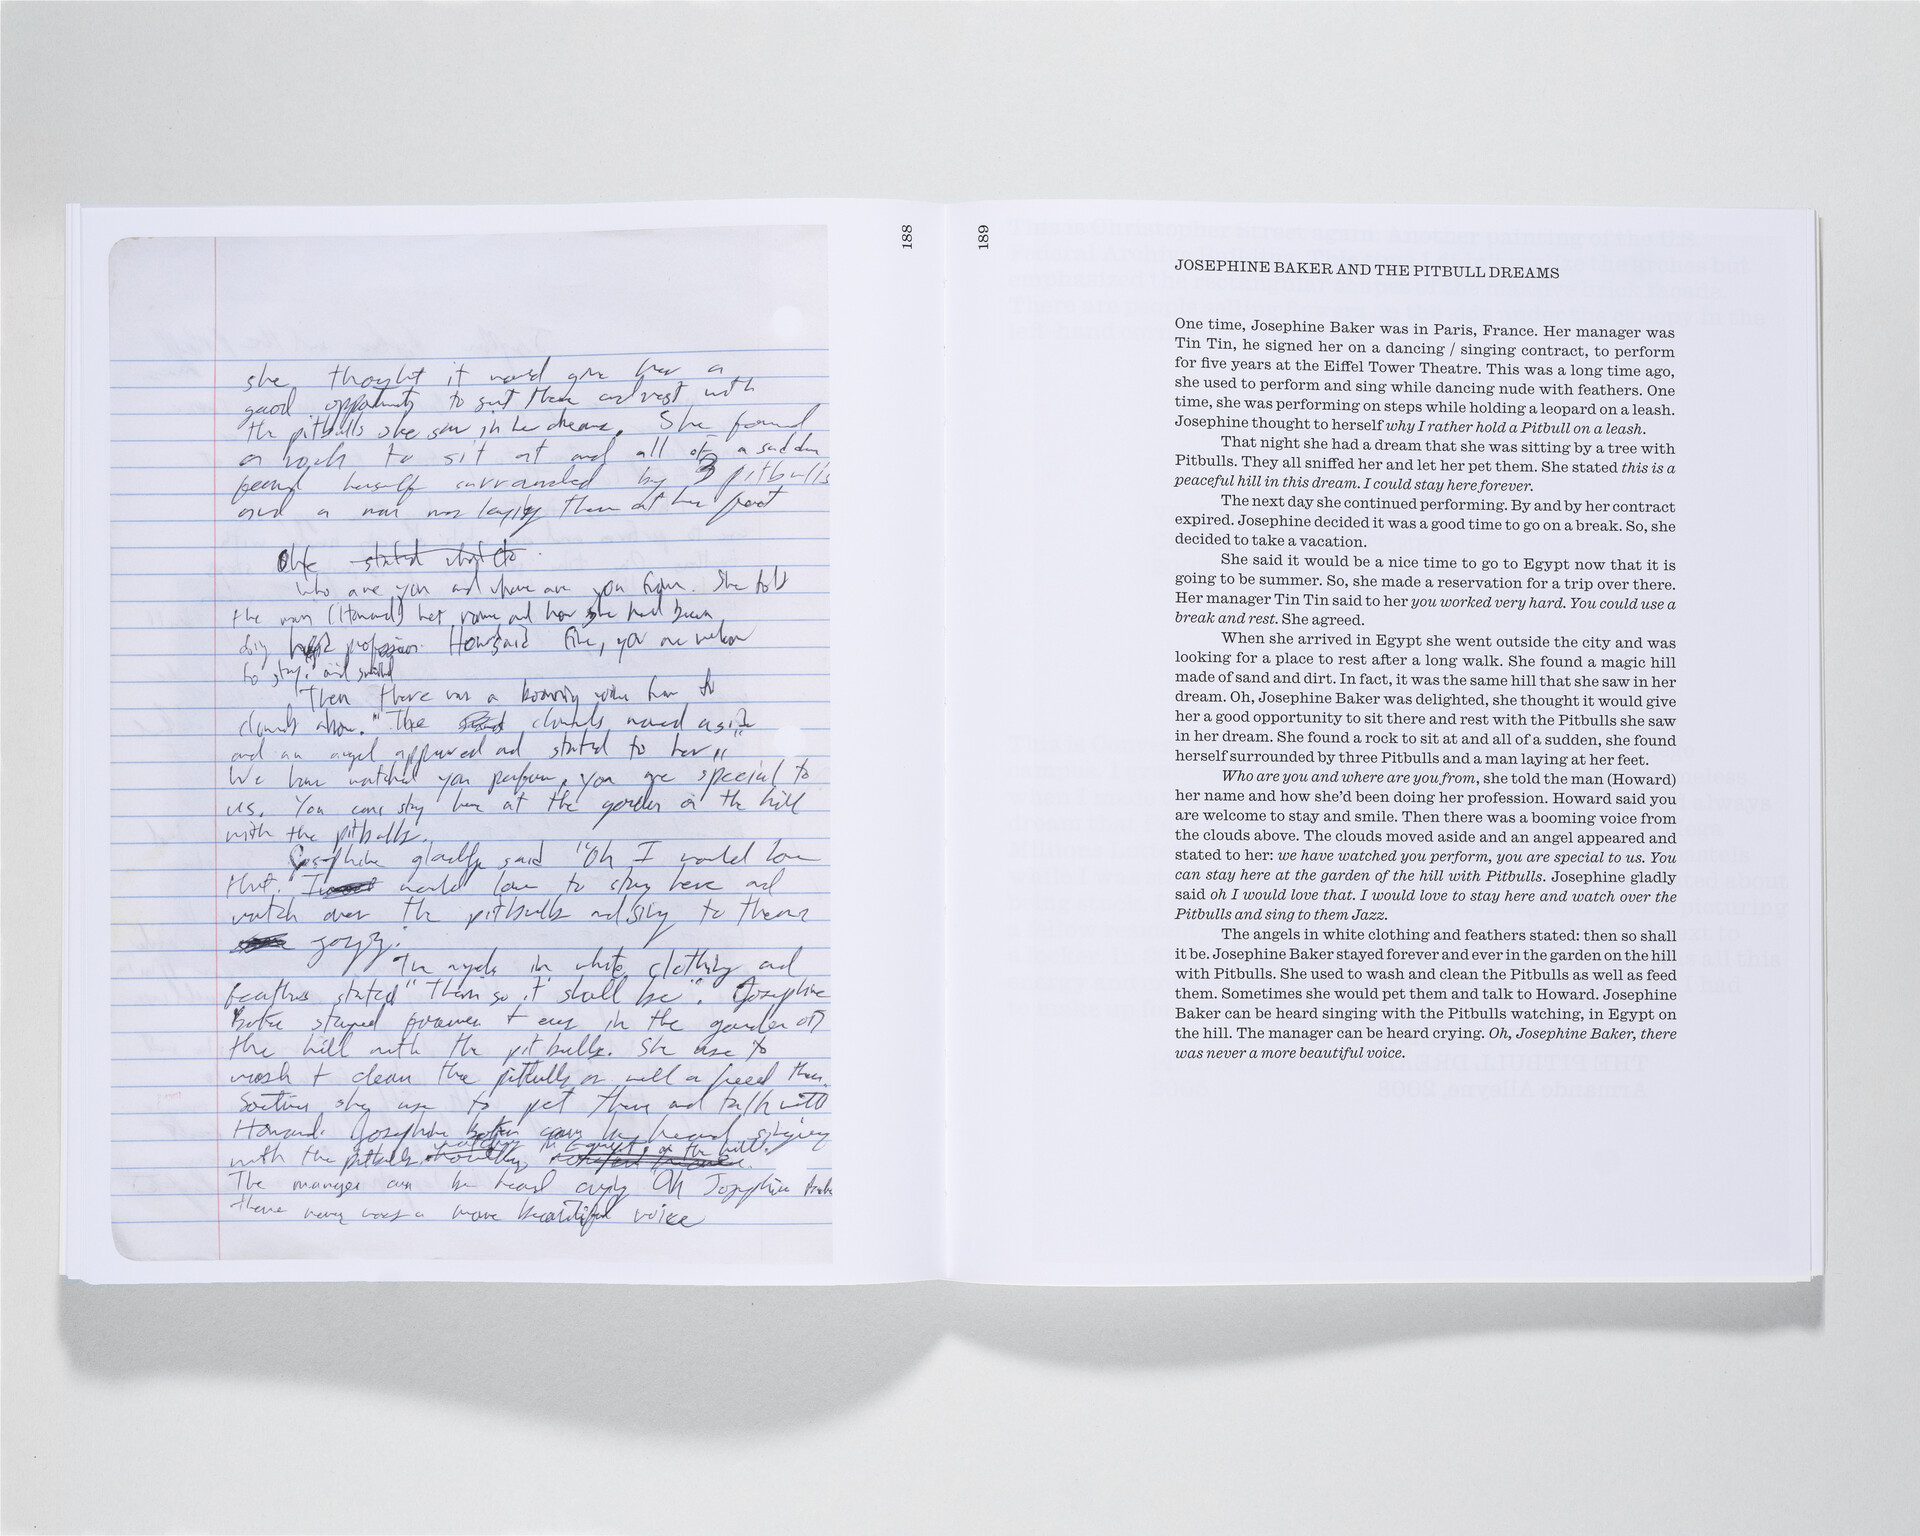 188
she thought it would give her a
good opportunity to sit there and rest with
the pitbulls she saw in her dreams. She found
a rock to sit at and all of a sudden
found herself surrounded by 3 pitbulls
and a man was laying them at her feet
She stated
who are you and where are you from. She told
the man (Howard) her name and how she had been
doing her profession. Howard said fine, you are welcome
to stay. and smiled
Then there was a booming voice from the
clouds above. "The clouds moved aside
and an angel appeared and stated to her "
We have watched you perform, you are special to
us. You can stay here at the garden on the hill
with the pitbulls.
Josephine gladly said "Oh I would love
that. I would love to stay here and
watch over the pitbulls and sing to them
jazz."
The angels in white clothing and
feathers stated "then so it shall be". Josephine
Baker stayed forever + ever in the garden on
the hill with the pit bulls. She use to
wash + clean the pitbulls as well a feed them.
Sometimes she use to pet them and talk with
Howard. Josephine Baker can be heard singing
with the pitbulls watching in Egypt, on the hill.
The manager can be heard crying "Oh Josephine Baker
there never was a more beautiful voice
189
JOSEPHINE BAKER AND THE PITBULL DREAMS
One time, Josephine Baker was in Paris, France. Her manager was
Tin Tin, he signed her on a dancing / singing contract, to perform
for five years at the Eiffel Tower Theatre. This was a long time ago,
she used to perform and sing while dancing nude with feathers. One
time, she was performing on steps while holding a leopard on a leash.
Josephine thought to herself why I rather hold a Pitbull on a leash.
That night she had a dream that she was sitting by a tree with
Pitbulls. They all sniffed her and let her pet them. She stated this is a
peaceful hill in this dream. I could stay here forever.
The next day she continued performing. By and by her contract
expired. Josephine decided it was a good time to go on a break. So, she
decided to take a vacation.
She said it would be a nice time to go to Egypt now that it is
going to be summer. So, she made a reservation for a trip over there.
Her manager Tin Tin said to her you worked very hard. You could use a
break and rest. She agreed.
When she arrived in Egypt she went outside the city and was
looking for a place to rest after a long walk. She found a magic hill
made of sand and dirt. In fact, it was the same hill that she saw in her
dream. Oh, Josephine Baker was delighted, she thought it would give
her a good opportunity to sit there and rest with the Pitbulls she saw
in her dream. She found a rock to sit at and all of a sudden, she found
herself surrounded by three Pitbulls and a man laying at her feet.
Who are you and where are you from, she told the man (Howard)
her name and how she'd been doing her profession. Howard said you
are welcome to stay and smile. Then there was a booming voice from
the clouds above. The clouds moved aside and an angel appeared and
stated to her: we have watched you perform, you are special to us. You
can stay here at the garden of the hill with Pitbulls. Josephine gladly
said oh I would love that. I would love to stay here and watch over the
Pitbulls and sing to them Jazz.
The angels in white clothing and feathers stated: then so shall
it be. Josephine Baker stayed forever and ever in the garden on the hill
with Pitbulls. She used to wash and clean the Pitbulls as well as feed
them. Sometimes she would pet them and talk to Howard. Josephine
Baker can be heard singing with the Pitbulls watching, in Egypt on
the hill. The manager can be heard crying. Oh, Josephine Baker, there
was never a more beautiful voice.